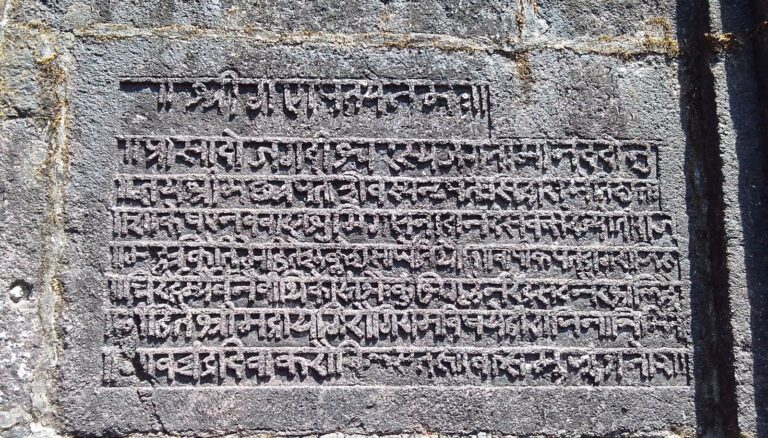 ॥ श्री गणपतये नमः ॥
॥ प्रासादो जगदीश्वरस्य जगतामानंददोनु
॥ ज्ञया श्रीमच्छत्रपतेः शिवस्य नृपतेः सिंहासने तिष्ठतः ॥
॥ शाके षण्णवबाणभूमिगणनादानन्दसंवत्सरे ज्योतीराज
॥ मुहूर्तकीर्तिमहिते शुक्लेशसार्पे तिथौ ॥ वापीकूपतडागराजि
॥ रुचिरं रम्यं वनं वीथिका स्तंभैः कुंभिगृहैः नरेन्द्रसदनैरभ्रंलिहै
॥ र्मीहिते श्रीमद्रायगिरौ गिरामविषये हीराजिना निर्मितो
॥ यावच्चंद्रदिवाकरौ विलसतस्तावत्समुज्जृंभते ॥